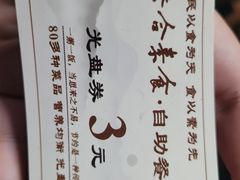 民以食为天 食以素为先
合素食·自助餐
光盘券 3元
一粥一饭，当思来之不易，节约是一种
80多种菜品 营养均衡